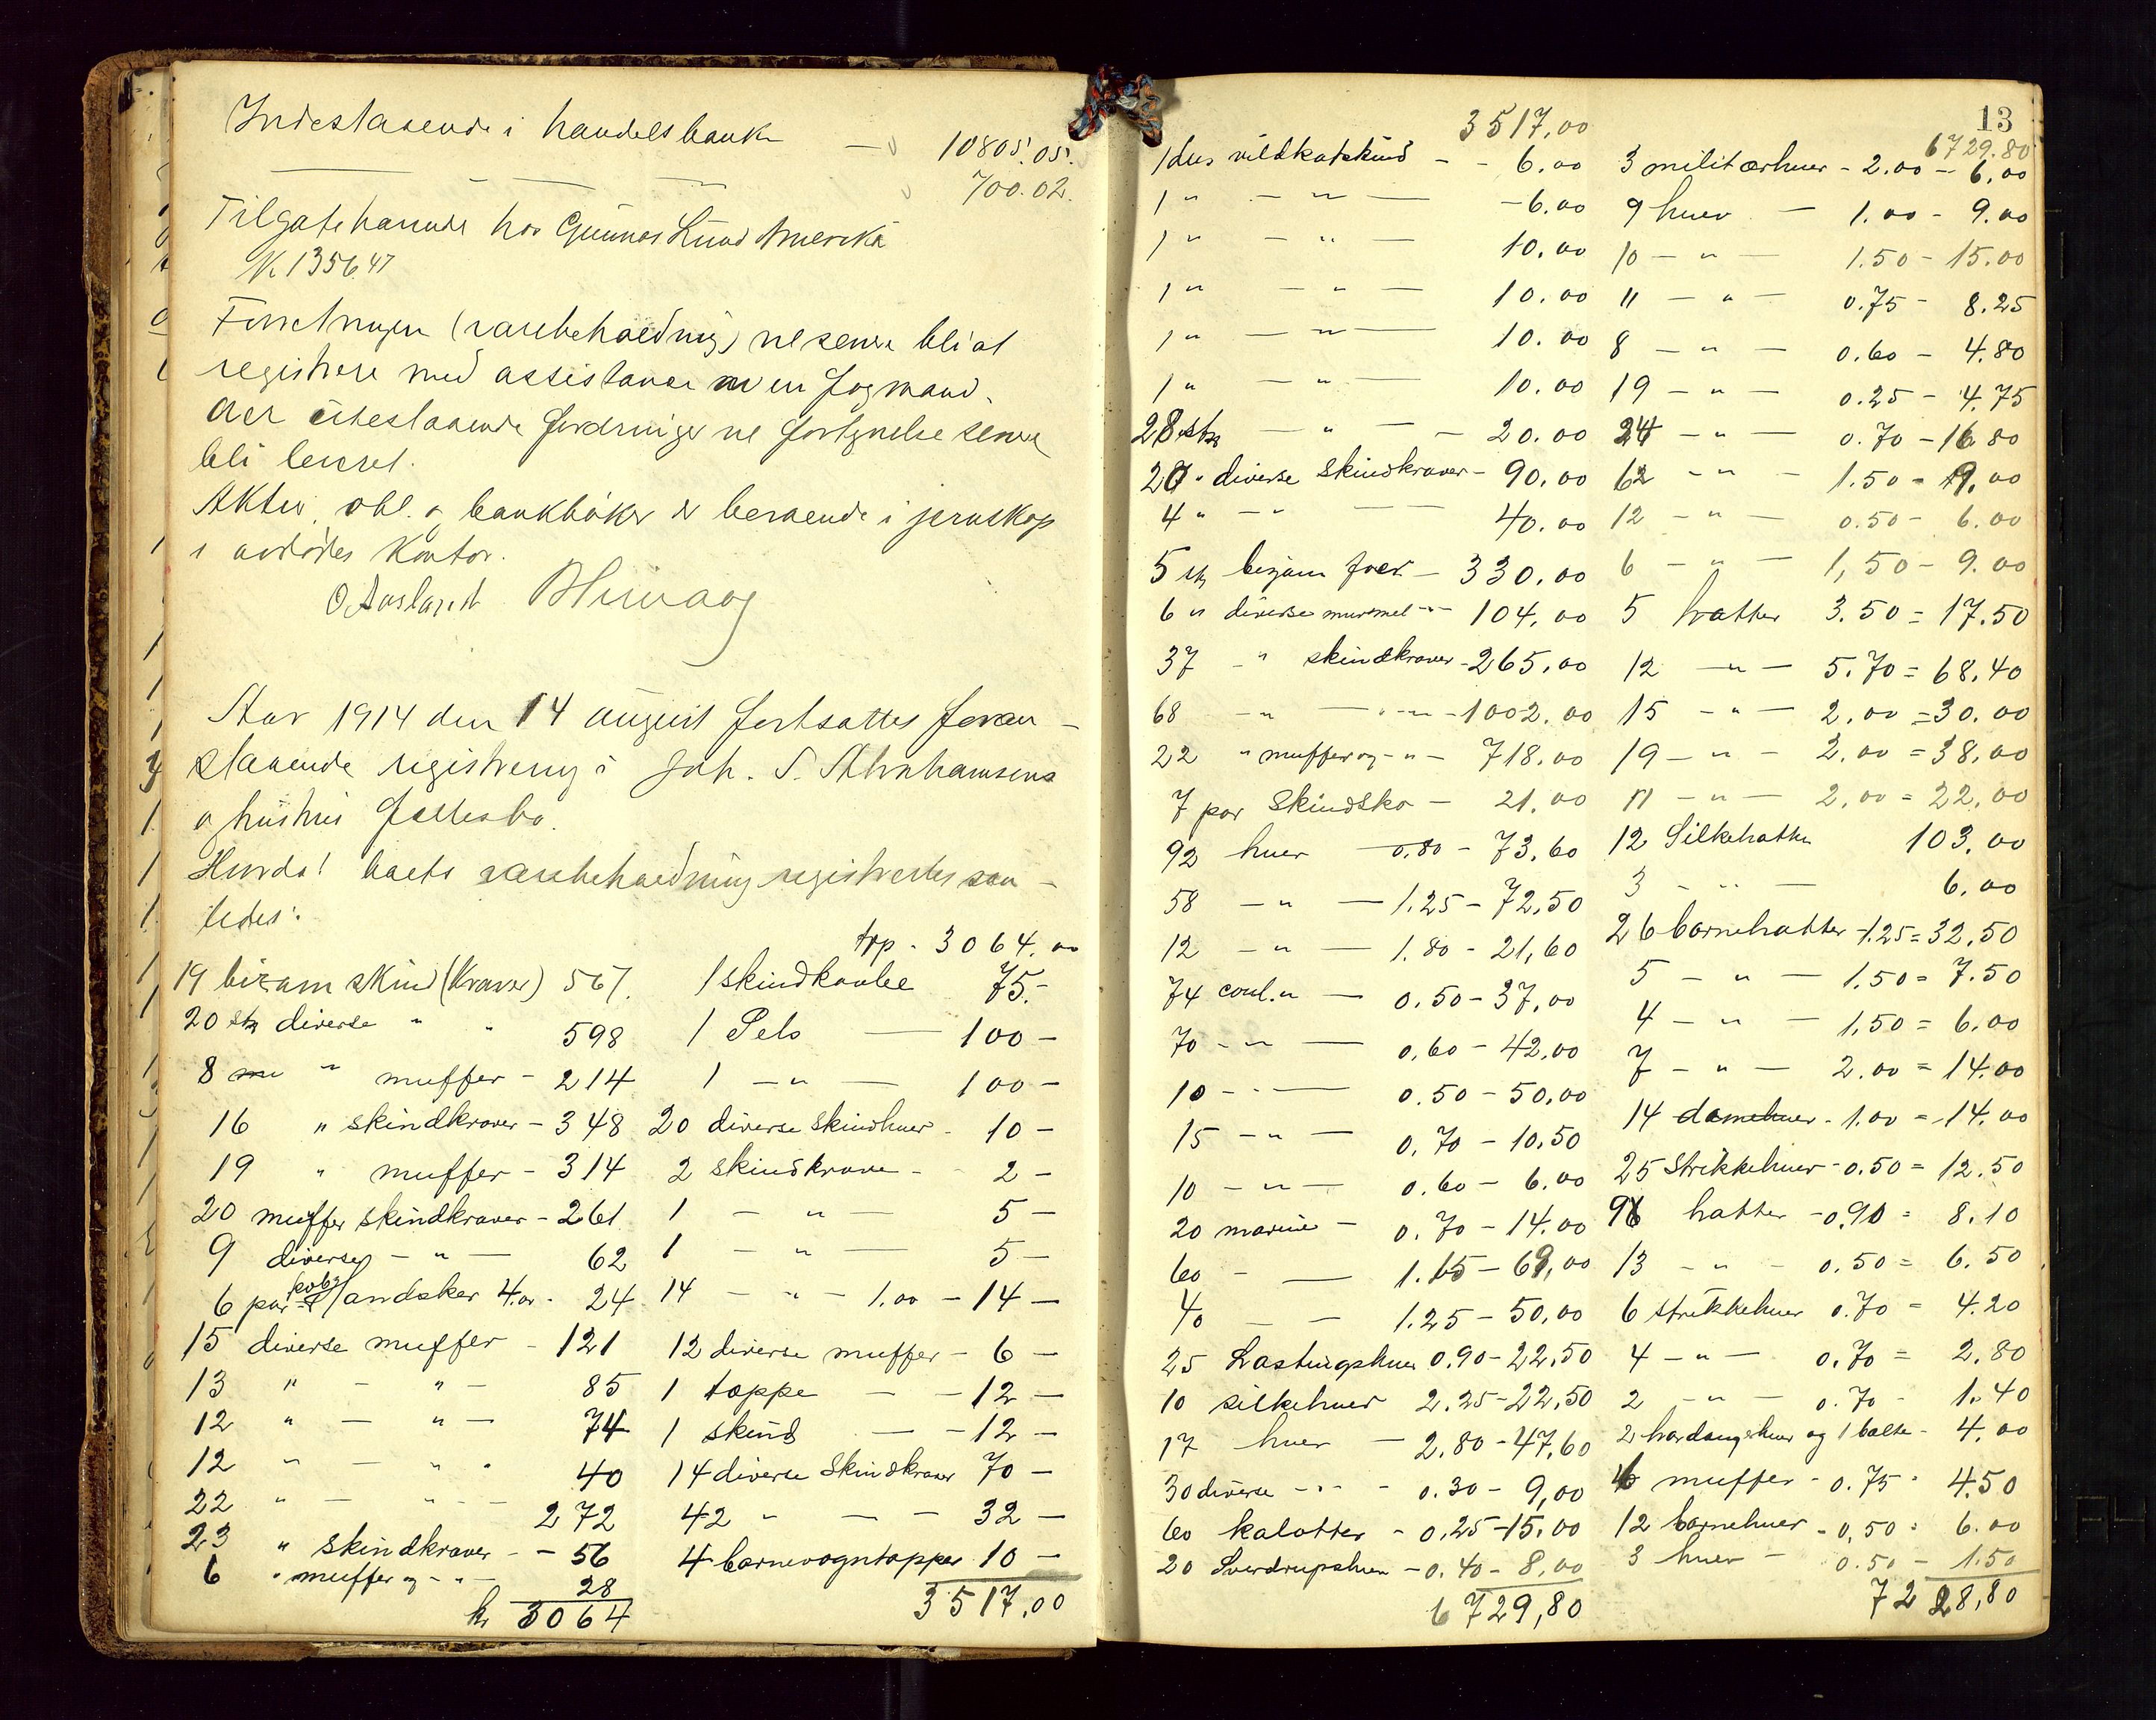 Indestaaende i handelsbank — 10805.05.
— — — — 700.02.
Tilgodehavende hos Gunnar Lund Amerika
K 1356.47
Forretningen (varebehaldning) vil senere bli at
registrere med assistance av en fagmand.
Over utestaaende fordringer vil fortegnelse senere
bli leveret.
Aktier, obl. o bankbøker er beroende i jernskap
i avdødes kontor.
O Aasland
Aar 1914 den 14 august fortsattes foran-
staaende registrering i Joh. S. Abrahamsens
o hustrus fællesbo.
varebehaldning registrertes saa-
ledes:
19 bisam skind (kraver) 567.
20 stk diverse " " 598
8 " muffer - 214
16 " skindkraver - 348
19 " muffer - 314
20 muffer skindkraver - 261
9 diverse - " — 62
6 par handsker 4.00 - 24
15 diverse muffer - 121
13 " - " - 85
12 " — " — 74
12 " — " " 40
22 " — " - - 272
23 " skindkraver - - 56
6 " muffer og - " - 28
kr 3064
trp - 3064.00
1 skindkaabe 75.-
1 Pels — 100 -
1 — " — 100 -
20 diverse skindhuer - 10 -
2 skindkraver - - 2 -
1 — " — 5 -
1 — " — 5 -
14 - " - 1.00 - 14 —
12 diverse muffer - 6 —
1 toppe — - 12 —
1 skind — - 12 —
14 diverse skindkraver 70 -
42 " — — - 32 —
4 barnevogntopper 10 —
3517.00
13
3517,00
1 dus vildkatskind - - 6.00
1 " - " — - 6.00
1 " - " — 10.00
1 " - " — 10.00
1 " — " — 10.00
1 " — " — 10.00
28 stk — " — - 20.00
20 " diverse skindkraver - 90,00
4 " - " — 40.00
5 stk bisam foer — 330.00
6 " diverse murmel - " - 104,00
37 - " skindkraver - 265,00
68 - " — - " - 1002.00
22 " muffer og - " - 718,00
7 par skindsko — 21,00
92 huer — 0,80 - 73,60
58 — " — 1.25 - 72,50
12 — " — 1.80 - 21,60
74 conf. " — 0.50 - 37,00
70 - " — 0,60 - 42,00
10 - - — 0.50 - 50,00
15 - " — 0,70 - 10,50
10 - " — 0.60 - 6.00
20 marine — 0.70 - 14.00
60 - — 1.15 - 69,00
40 — — 1.25 - 50,00
25 Lastingshuer 0.90 - 22,50
10 silkehuer 2.25 - 22,50
17 huer — 2,80 - 47,60
30 diverse - " - 0.30 - 9,00
60 kalotter - 0,25 - 15,00
20 Sverdrupshuer - 0.40 - 8,00
6729,80
6729.80
3 militærhuer - 2.00 - 6.00
9 huer — 1.00 - 9.00
10 - " — 1.50 - 15.00
11 — " — 0.75 - 8.25
8 — " — 0.60 - 4.80
19 - " — 0.25 - 4.75
24 - " — 0.70 - 16.80
62 - " - 1.50 - 9,00
12 - " — 0.50 - 6.00
6 - " — 1,50 - 9.00
5 hatter 3.50 = 17.50
12 — " — 5.70 = 68.40
15 - " — 2,00 = 30.00
19 - " - 2,00 = 38,00
11 - " — 2,00 = 22,00
12 Silkehatter 103,00
3 - " — 6,00
26 barnehatter - 1.25 = 32,50
5 - " — 1,50 = 7.50
4 - " — 1,50 = 6.00
7 - " — 2.00 = 14.00
14 damehuer - 1.00 = 14.00
25 Strikkehuer - 0.50 = 12.50
9 hatter - 0,90 = 8.10
13 - " - 0.50 = 6.50
6 strikkehuer 0.70 = 4.20
4 - " — 0.70 = 2.80
2 - " — 0.70 - 1.40
2 hardangerhuer og 1 balte - 4.00
6 muffer - 0.75 - 4.50
12 barnehuer - 0,50 = 6.00
3 huer — 0.50 - 1.50
7228,80